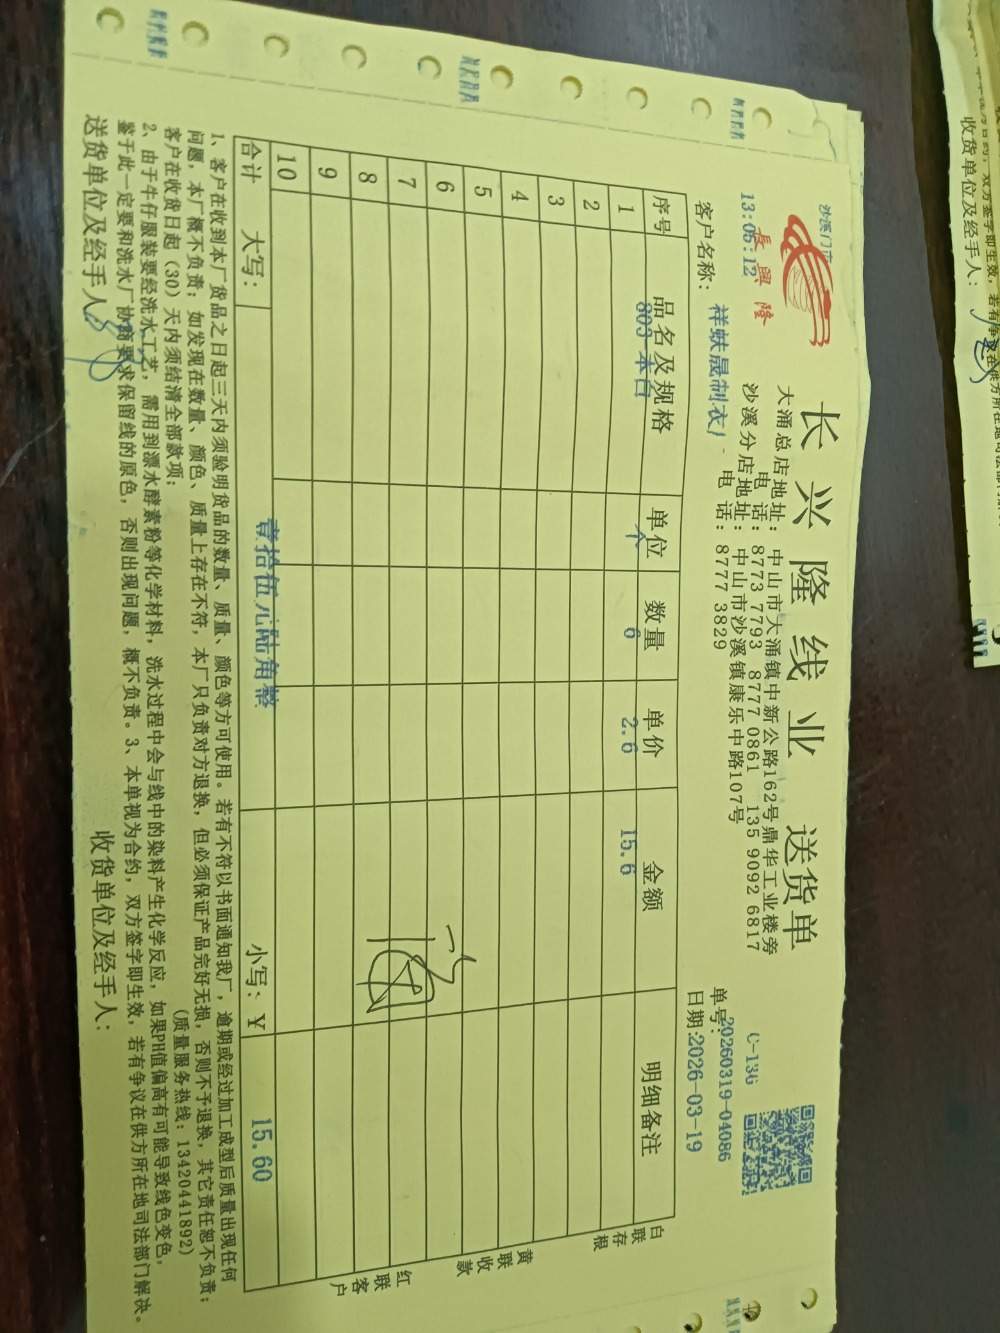 沙溪门
13:05:12
長興隆
长兴隆线业 送货单
大涌总店地址: 中山市大涌镇中新公路162号鼎华工业楼旁
电 话: 8773 7793 8777 0861 135 9092 6817
沙溪分店地址: 中山市沙溪镇康乐中路107号
电 话: 8777 3829
C-136
单号:20260319-04086
客户名称: 祥 晟制衣
日期:2026-03-19
序号 品名及规格 单位 数量 单价 金额 明细备注
1 803 本白 个 6 2.6 15.6
2
3
4
5
6
7
8
9
10
合计 大写: 壹拾伍元陆角整 小写: ¥ 15.60
白联存根
黄联收款
红联客户
1、客户在收到本厂货品之日起三天内须验明货品的数量、质量、颜色等方可使用。若有不符以书面通知我厂，逾期或经过加工成型后质量出现任何
问题，本厂概不负责；如发现在数量、颜色、质量上存在不符，本厂只负责对方退换，但必须保证产品完好无损，否则不予退换，其它责任恕不负责；
客户在收货日起（30）天内须结清全部款项； (质量服务热线：13420441892)
2、由于牛仔服装要经洗水工艺，需用到漂水酵素粉等化学材料，洗水过程中会与线中的染料产生化学反应，如果PH值偏高有可能导致线色变色，
鉴于此一定要和洗水厂协商要求保留线的原色，否则出现问题，概不负责。3、本单视为合约，双方签字即生效，若有争议在供方所在地司法部门解决。
送货单位及经手人: 收货单位及经手人:
双方签字即生效，若有争议在供方所在地司法
收货单位及经手人: